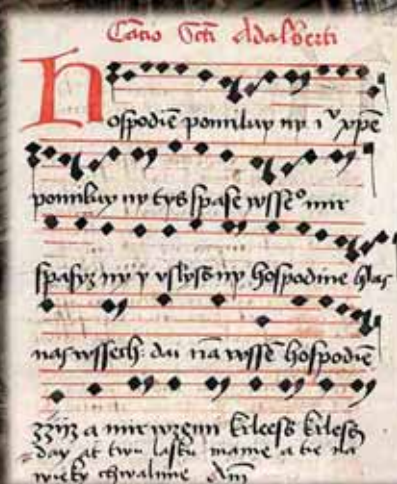 Cãtio Scti Adalberti
Hospodiē pomiluy ny iᵘ xpē
pomiluy ny tys spase wsseᵒ mir
spasyz ny y uslyss ny hospodine hlas
nas wssech: dai nā wssē hospodiē
zzijz a mir wzemi krleess krless
day at twu lasku mame a tie na
wieky chwalime Am̄